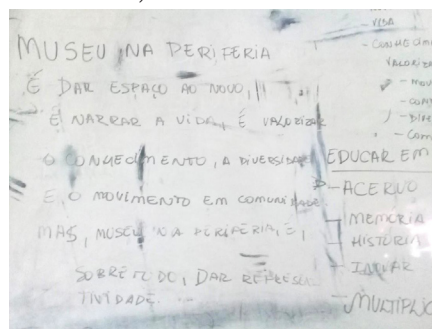 MUSEU NA PERIFERIA
É DAR ESPAÇO AO NOVO,
É NARRAR A VIDA, É VALORIZAR
O CONHECIMENTO, A DIVERSIDADE
E O MOVIMENTO EM COMUNIDADE
MAS, MUSEU NA PERIFERIA, É,
SOBRETUDO, DAR REPRESEN
TIVIDADE...
- VIDA
- CONHECIM
VALORIZA
- MOV
- DIVE
- COM
EDUCAR EM
- ACERVO
- MEMÓRIA
- HISTÓRIA